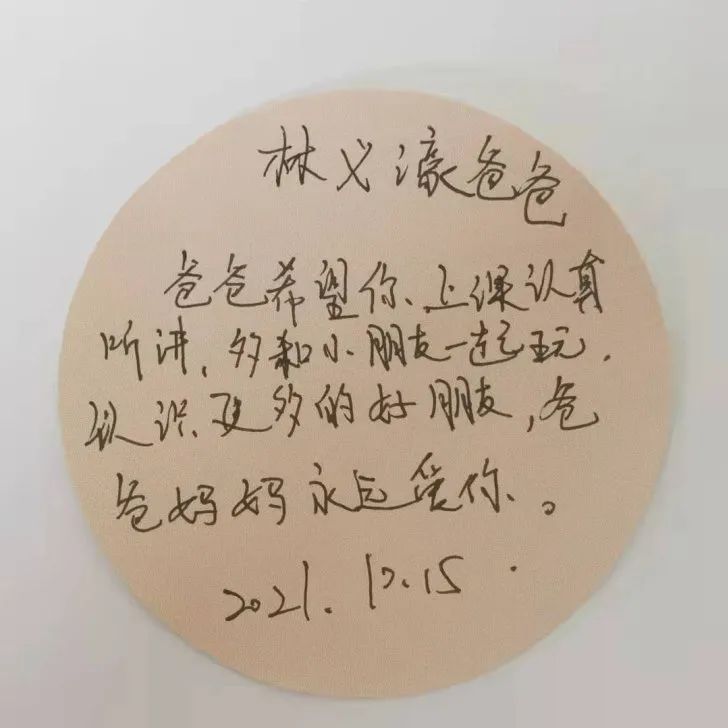 林义濠爸爸
爸爸希望你、上课认真
听讲,多和小朋友一起玩,
认识更多的好朋友,爸
爸妈妈永远爱你、。
2021.10.15.